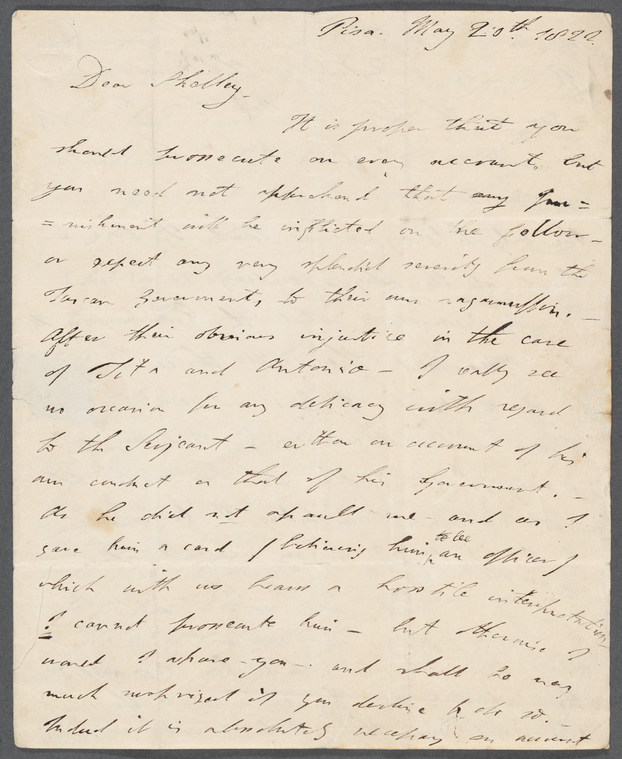 Pisa. May 20th. 1822.
Dear Shelley.
It is proper that you
should prosecute on every account, but
you need not apprehend that any pun=
=nishment will be inflicted on the fellow—
or expect any very splendid severity from the
Tuscan Government, to their own
After their obvious injustice in the case
of Tita and Antonio — I really see
no occasion for any delicacy with regard
to the Serjeant — either on account of his
own conduct or that of his Government. —
As he did not assault me — and as I
gave him a card (believing him to be an officer)
which with us bears a hostile interpretation
I cannot prosecute him — but otherwise I
would I assure you — and shall be very
much surprized if you decline to do so. —
Indeed it is absolutely necessary on account